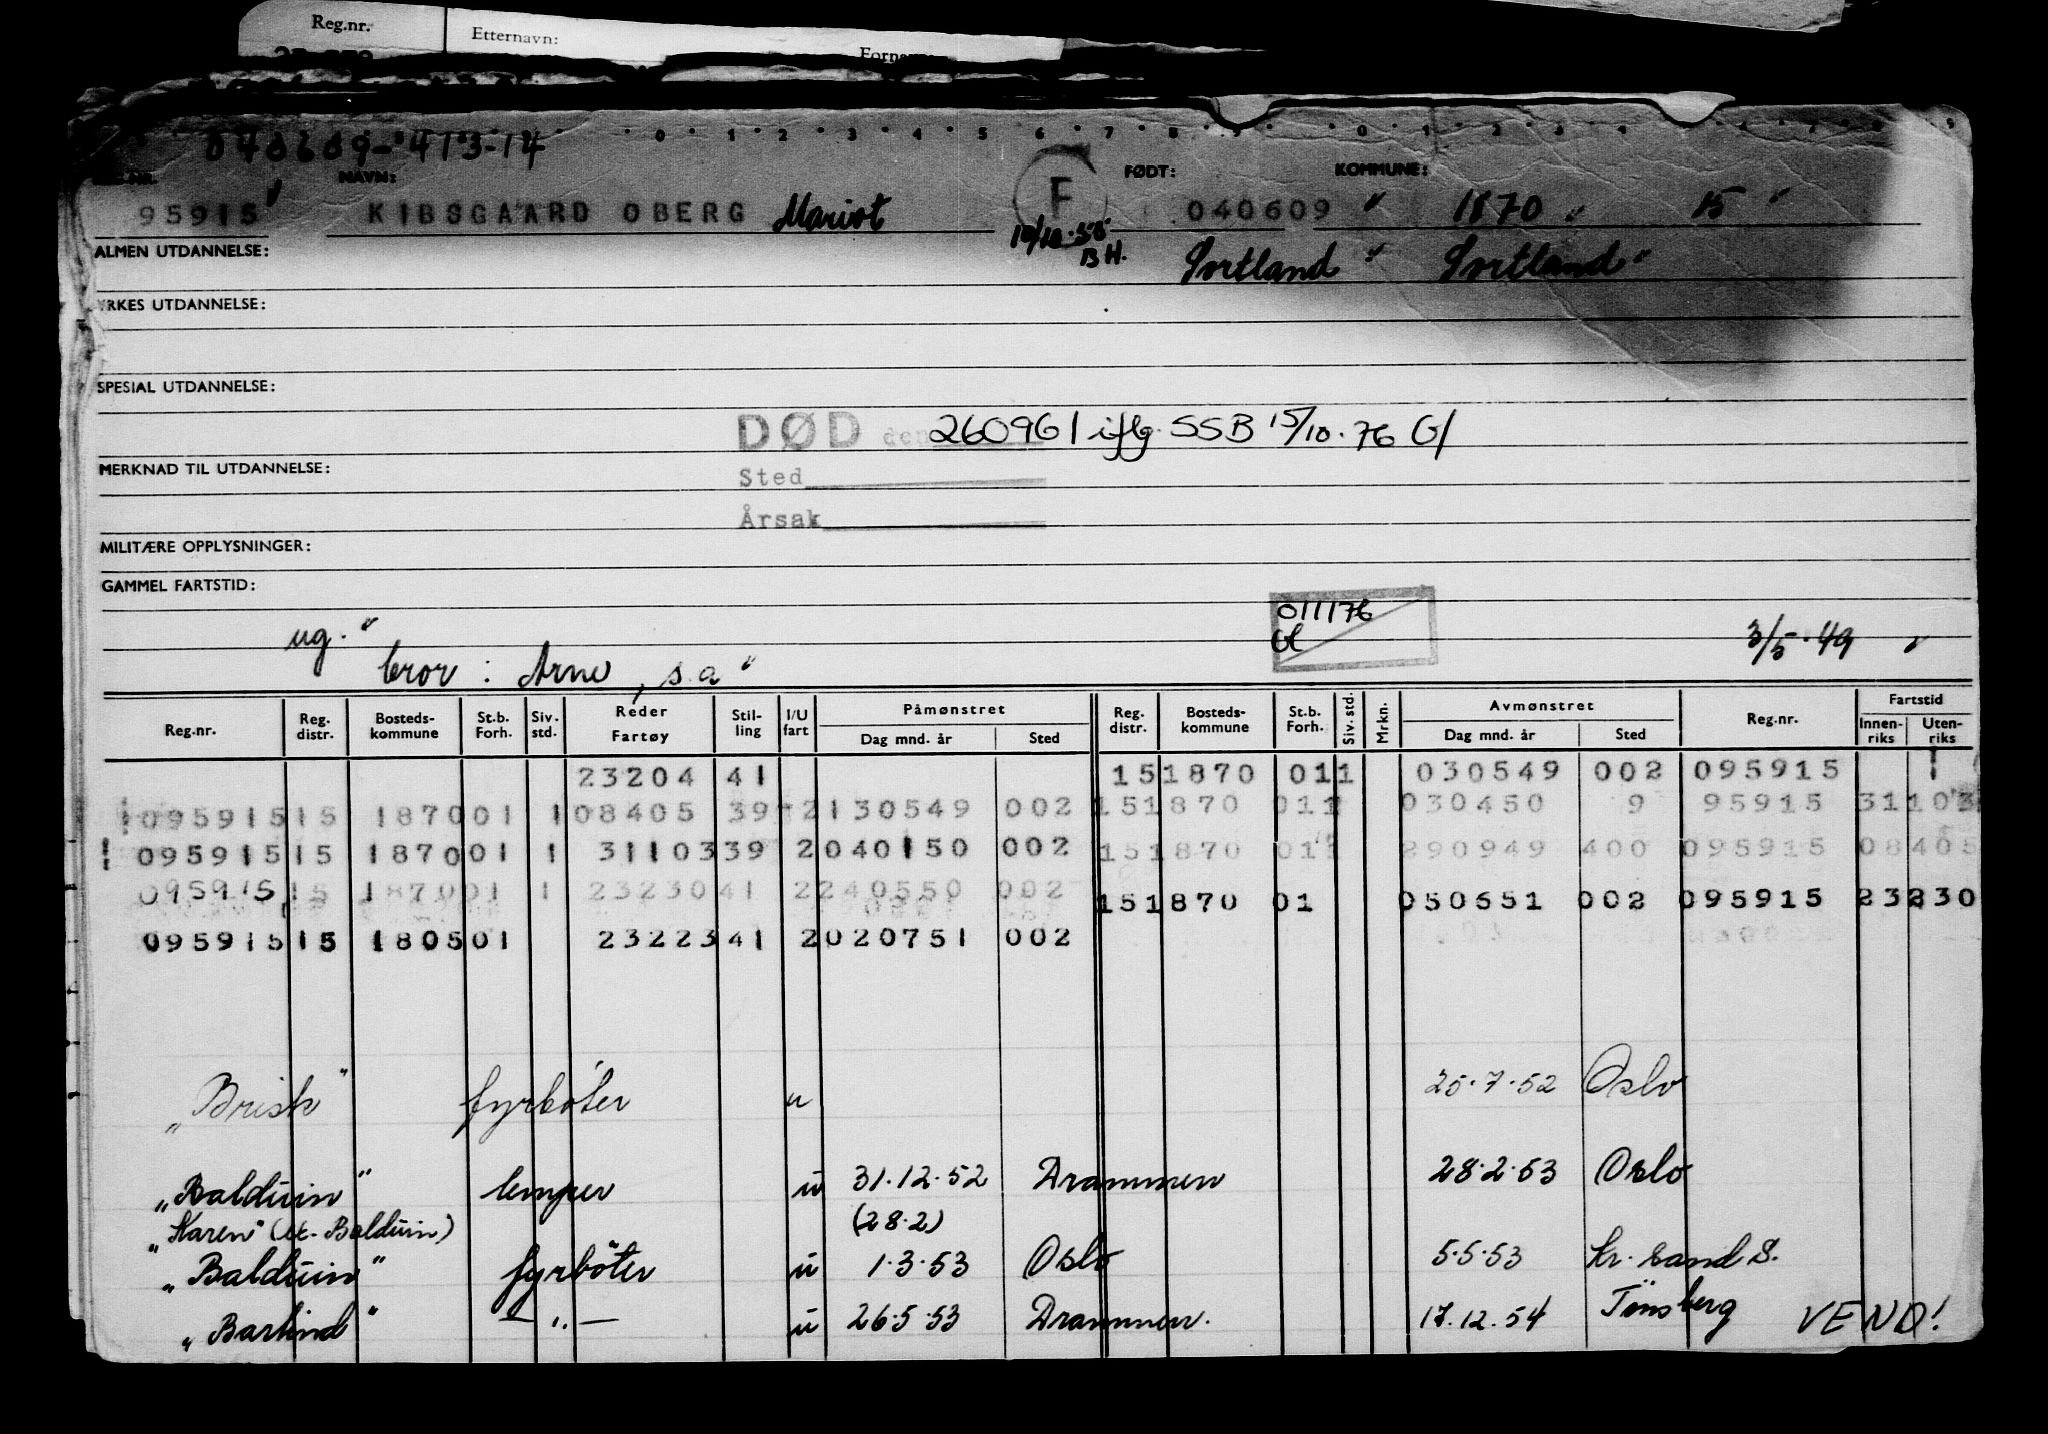 Reg.nr. Etternavn:
040609-41314
0 1 2 3 4 5 6 7 8 9 0 1 2 3 4
NAVN: F FØDT: KOMMUNE:
95915" KIBSGAARD OBERG Mariot 040609 " 1870 " 15 "
10/10.58 BH.
ALMEN UTDANNELSE: Sortland " Sortland "
YRKES UTDANNELSE:
SPESIAL UTDANNELSE:
DØD den 260961 iflg. SSB 15/10.76 G/
MERKNAD TIL UTDANNELSE:
Sted
Årsak
MILITÆRE OPPLYSNINGER:
GAMMEL FARTSTID:
011176
ug. " 3/5.49 "
bror : Arne, s.a "
Reg.nr. Reg. distr. Bosteds-kommune St.b. Forh. Siv. std. Reder Fartøy Stil-ling I/U fart Påmønstret Dag mnd. år Sted Reg. distr. Bosteds-kommune St.b. Forh. Siv. std. Mrkn. Avmønstret Dag mnd. år Sted Reg.nr. Fartstid Innen-riks Uten-riks
23204 41 15 1870 01 1 030549 002 095915
095915 15 1870 01 1 08405 39 2 130549 002 15 1870 01 1 030450 9 95915 31103
095915 15 1870 01 1 31103 39 2 040150 002 15 1870 01 1 290949 400 095915 08405
095915 15 1870 01 1 23230 41 2 240550 002 15 1870 01 050651 002 095915 23230
095915 15 1805 01 23223 41 2 020751 002
"Brisk" fyrbøter u 25.7.52 Oslo
"Balduin" lemper u 31.12.52 Drammen 28.2.53 Oslo
"Karen" (ex. Balduin) (28.2)
"Balduin" fyrbøter u 1.3.53 Oslo 5.5.53 Kr. sand S.
"Barlind" — " — u 26.5.53 Drammen. 17.12.54 Tønsberg VEND!